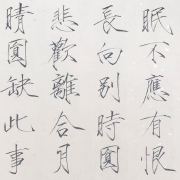 眠不應有恨
長向别時圓
悲歡離合月
晴圓缺此事